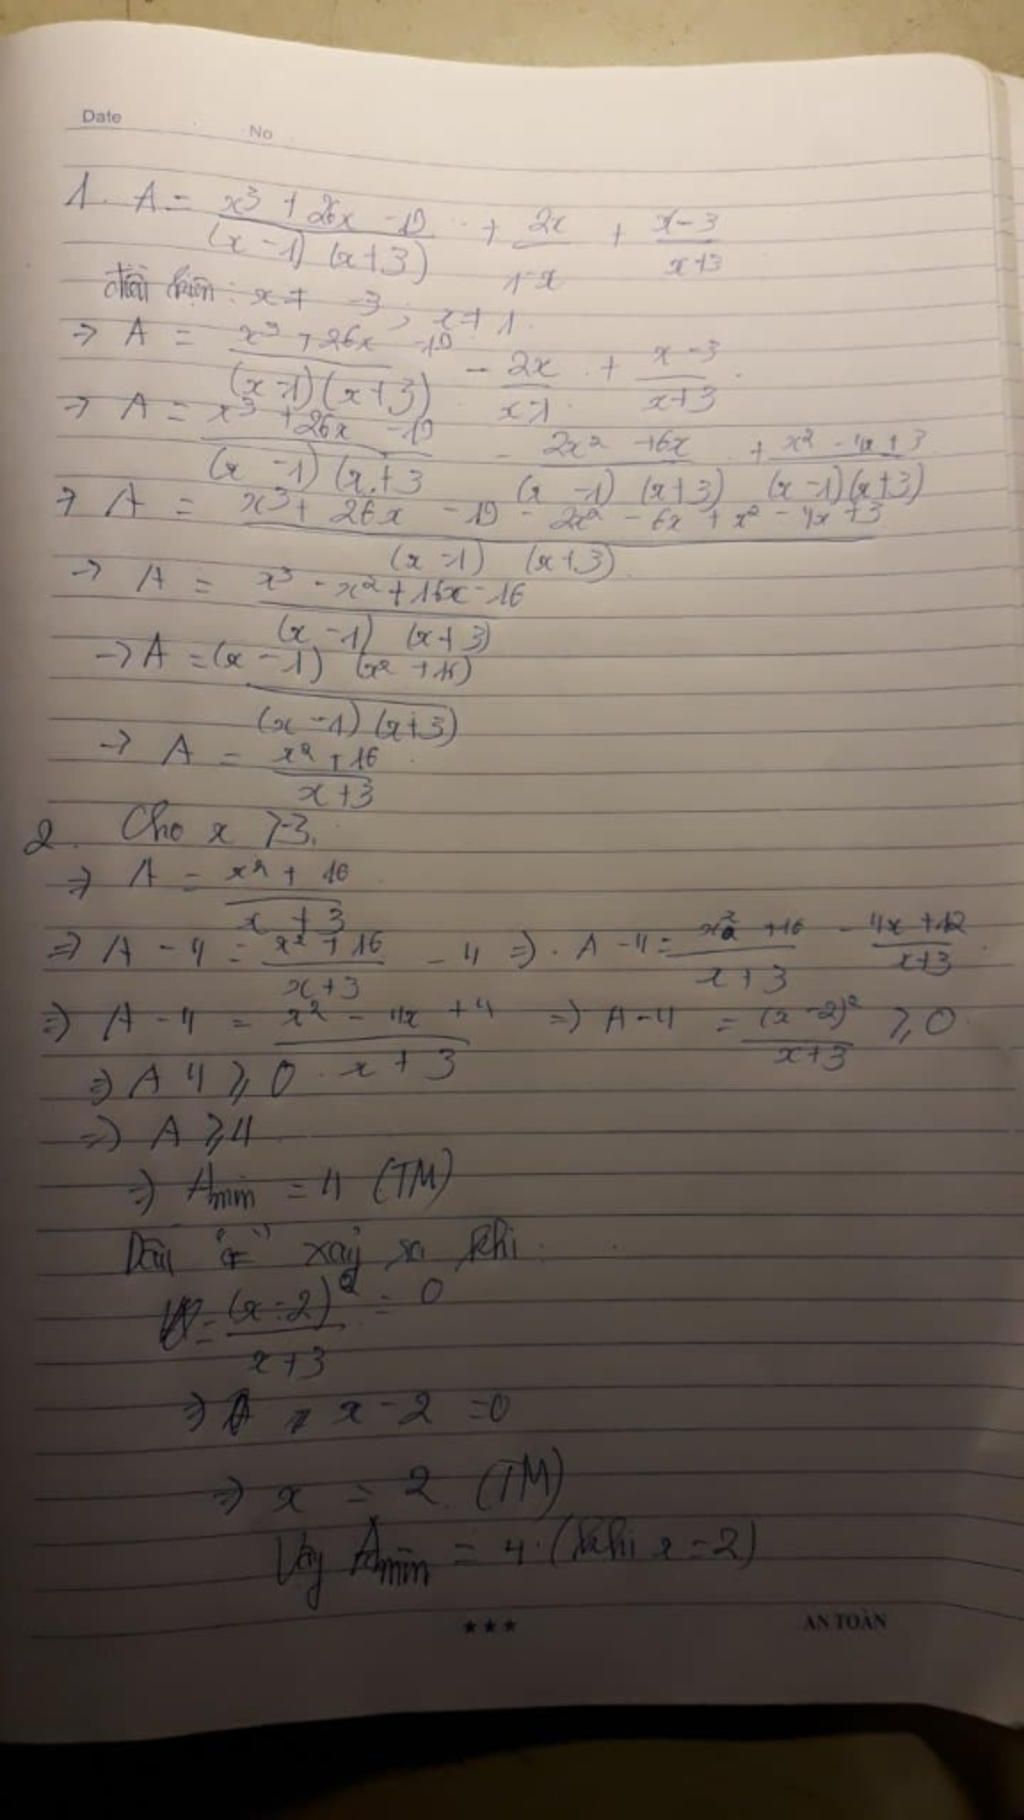 Date No
1. A = (x³ + 26x - 19)/((x - 1) (x+3)) + 2x/(1-x) + (x-3)/(x+3)
điều kiện: x ≠ -3; x ≠ 1.
=> A = (x³ + 26x - 19)/((x-1)(x+3)) - 2x/(x-1) + (x-3)/(x+3).
-> A = (x³ + 26x - 19)/((x - 1) (x+3) - (2x² + 6x)/((x - 1) (x+3)) + (x² - 4x + 3)/((x - 1)(x+3))
-> A = (x³ + 26x - 19 - 2x² - 6x + x² - 4x + 3)/((x-1) (x+3))
-> A = (x³ - x² + 16x - 16)/((x - 1) (x+3))
-> A = ((x - 1) (x² + 16))/((x - 1)(x+3))
-> A = (x² + 16)/(x+3)
2. Cho x > -3.
=> A = (x² + 16)/(x + 3)
=> A - 4 = (x² + 16)/(x+3) - 4 => A - 4 = (x² + 16)/(x+3) - (4x + 12)/(x+3)
=> A - 4 = (x² - 4x + 4)/(x + 3) => A - 4 = (x - 2)²/(x+3) ≥ 0
=> A 4 ≥ 0
=> A ≥ 4
=> Amin = 4 (TM)
Dấu "=" xảy ra khi
(x-2)²/(x+3) = 0
=> x - 2 = 0
=> x = 2 (TM)
Vậy Amin = 4 (khi x = 2)
★★★ AN TOÀN